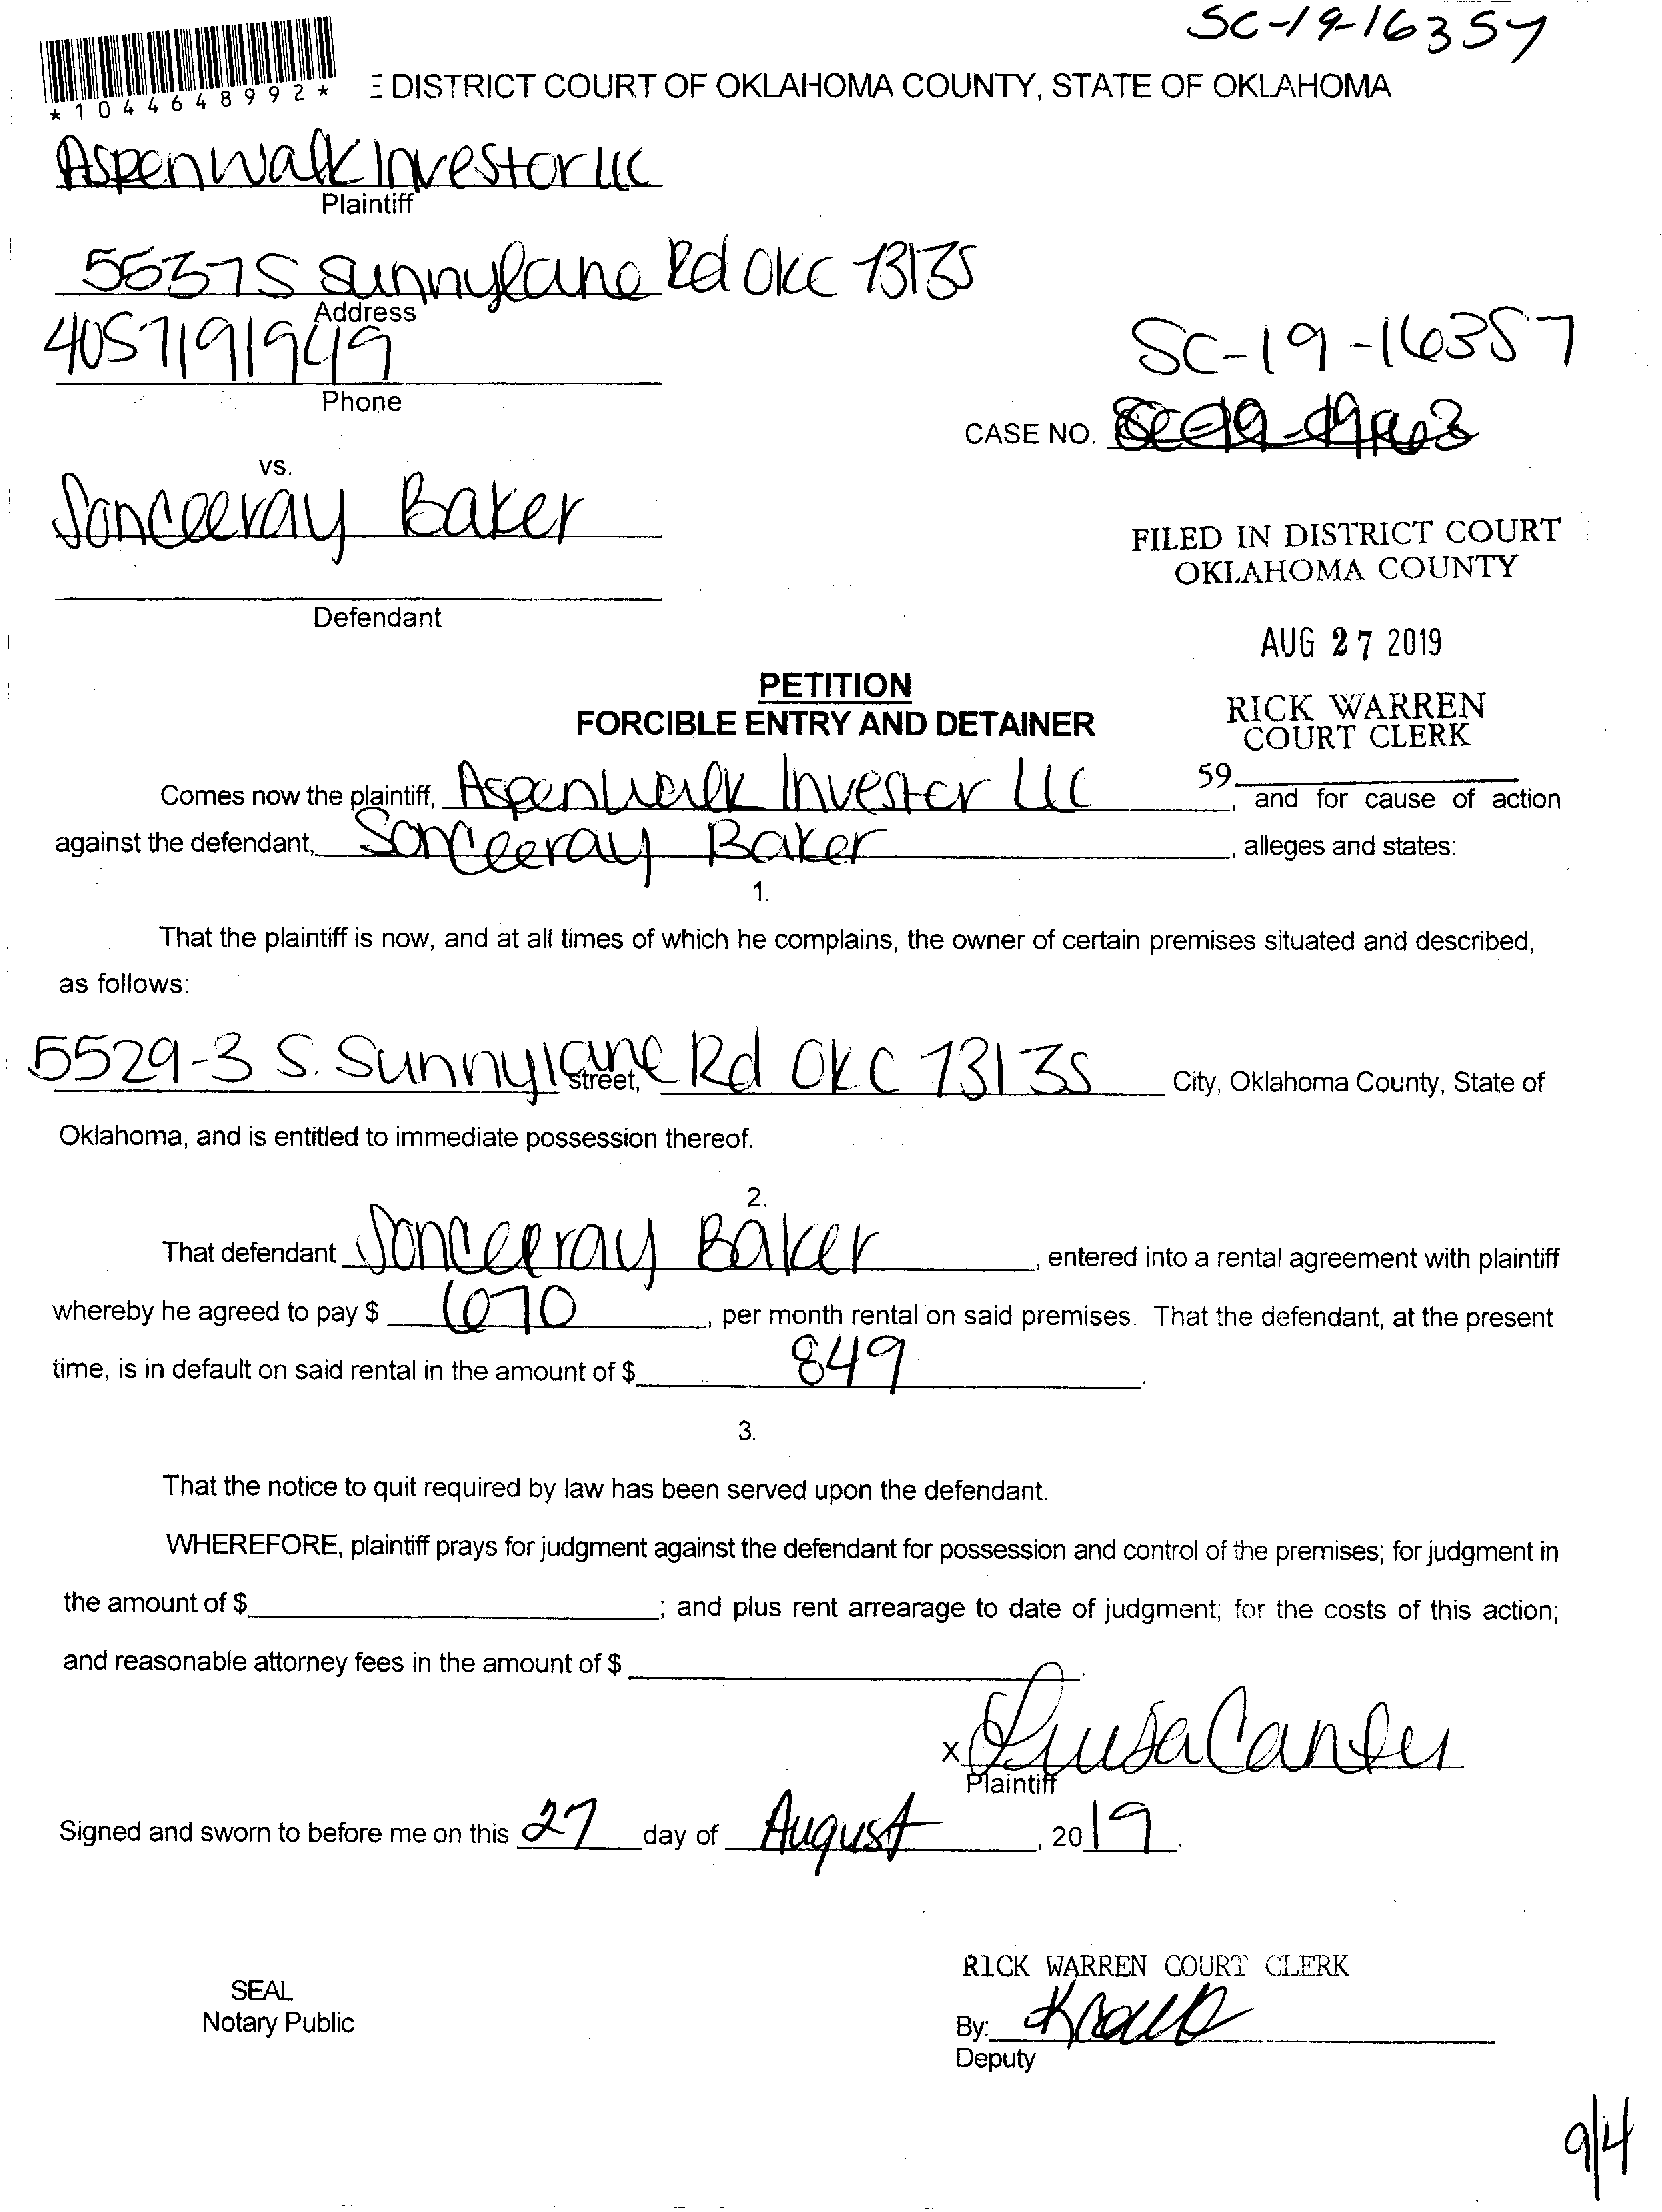 SC-19-16357
*1044648992*
E DISTRICT COURT OF OKLAHOMA COUNTY, STATE OF OKLAHOMA
Aspenwalk Investor LLC
Plaintiff
5537 S Sunnylane Rd OKC 73135
Address
4057191949
Phone
SC-19-16357
CASE NO.
vs.
Sonceeray Baker
FILED IN DISTRICT COURT
OKLAHOMA COUNTY
Defendant
AUG 27 2019
PETITION
FORCIBLE ENTRY AND DETAINER
RICK WARREN
COURT CLERK
59
Comes now the plaintiff, Aspenwalk Investor LLC, and for cause of action
against the defendant, Sonceeray Baker, alleges and states:
1.
That the plaintiff is now, and at all times of which he complains, the owner of certain premises situated and described,
as follows:
5529-3 S. Sunnylane Rd OKC 73135 City, Oklahoma County, State of
Street,
Oklahoma, and is entitled to immediate possession thereof.
2.
That defendant Sonceeray Baker, entered into a rental agreement with plaintiff
whereby he agreed to pay $ 670, per month rental on said premises. That the defendant, at the present
time, is in default on said rental in the amount of $ 849.
3.
That the notice to quit required by law has been served upon the defendant.
WHEREFORE, plaintiff prays for judgment against the defendant for possession and control of the premises; for judgment in
the amount of $ ; and plus rent arrearage to date of judgment; for the costs of this action;
and reasonable attorney fees in the amount of $ .
x
Plaintiff
Signed and sworn to before me on this 27 day of August, 2019.
RICK WARREN COURT CLERK
SEAL
Notary Public
By:
Deputy
9/4